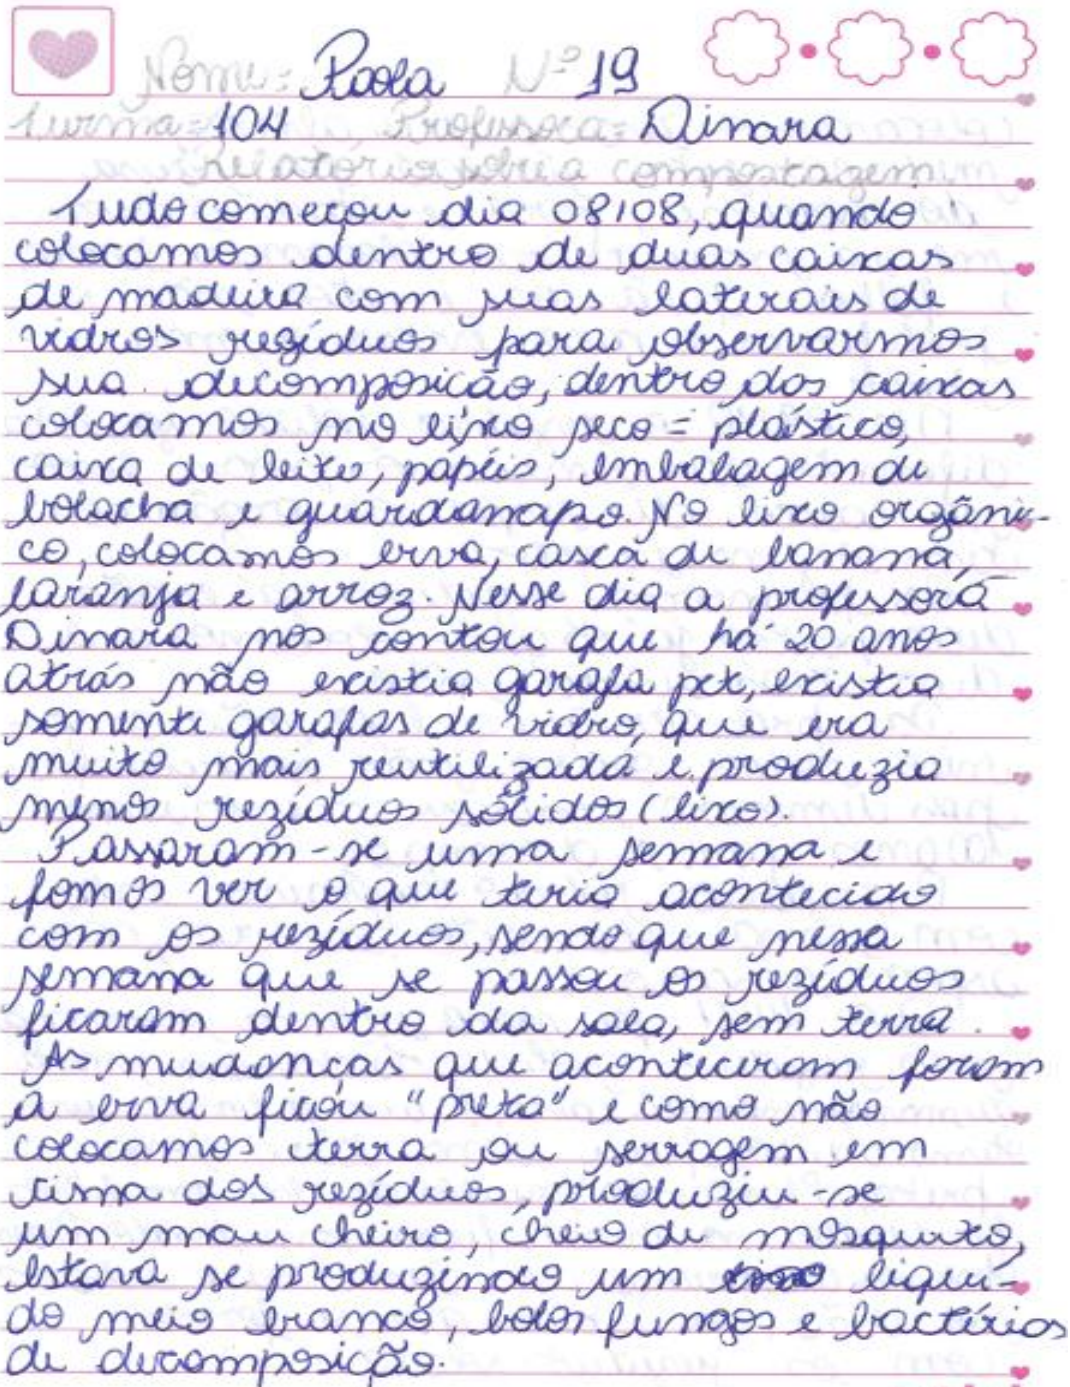 Nome: Paola Nº 19
Turma: 104 Professora: Dinara
Relatório sobre a compostagem
Tudo começou dia 08/08, quando
colocamos dentro de duas caixas
de madeira com suas laterais de
vidros regíduos para observarmos
sua decomposição, dentro dos caixas
colocamos no lixo seco = plástico,
caixa de leite, papéis, embalagem de
bolacha e guardanapo. No lixo orgâni-
co, colocamos erva, casca de banana,
laranja e arroz. Nesse dia a professora
Dinara nos contou que há 20 anos
atrás não existia garafa pet, existia
somente garafas de vidro, que era
muito mais reutilizada e produzia
menos rezíduos sólidos (lixo).
Passaram-se uma semana e
fomos ver o que teria acontecido
com os rezíduos, sendo que nessa
semana que se passou os rezíduos
ficaram dentro da sala, sem terra.
As mudanças que aconteceram foram
a erva ficou "preta" e como não
colocamos terra ou serragem em
cima dos rezíduos, produziu-se
um mau cheiro, cheio de mosquito,
estava se produzindo um liqui-
do meio branco, bolos fungos e bactérias
de decomposição.